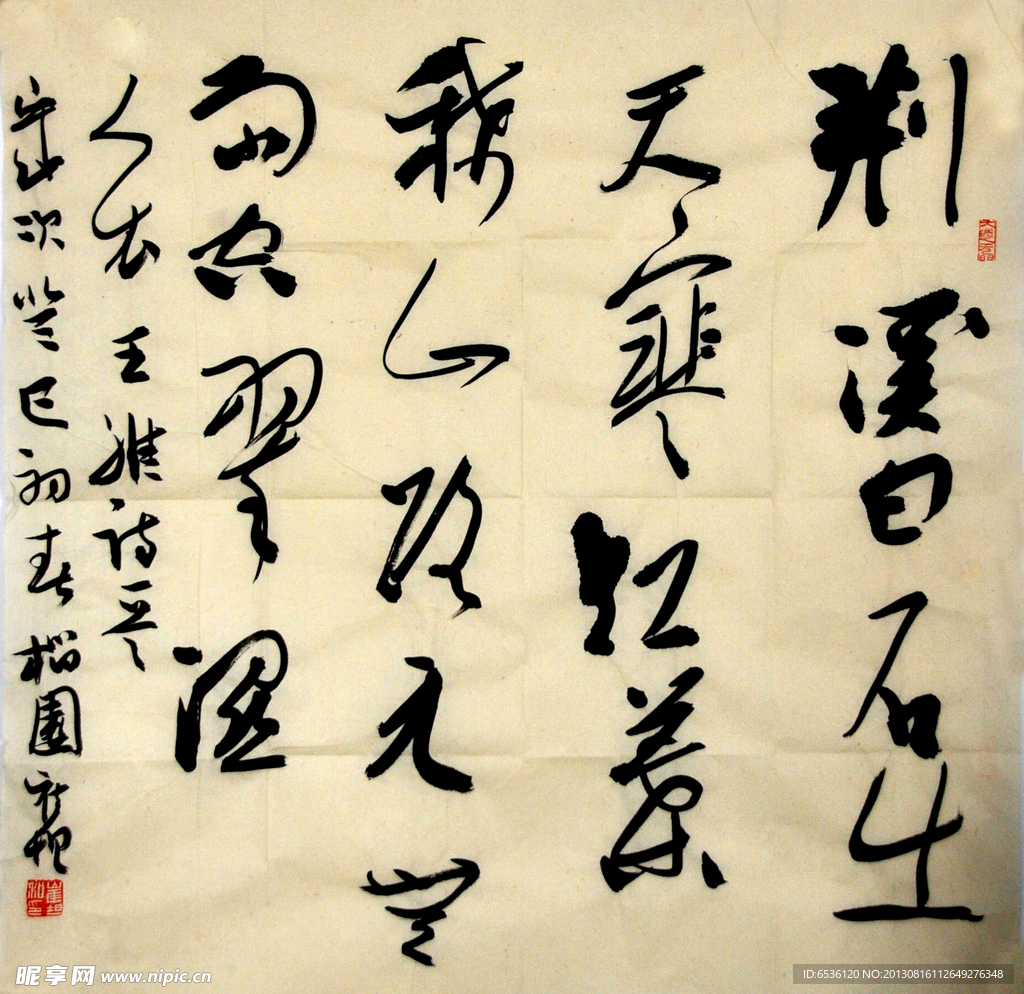 荆溪白石出
天寒紅葉
稀山路元無
雨空翠濕
人衣 王維詩一首
歲次癸巳初春榴園
昵享网 www.nipic.cn
ID:6536120 NO:20130816112649276348